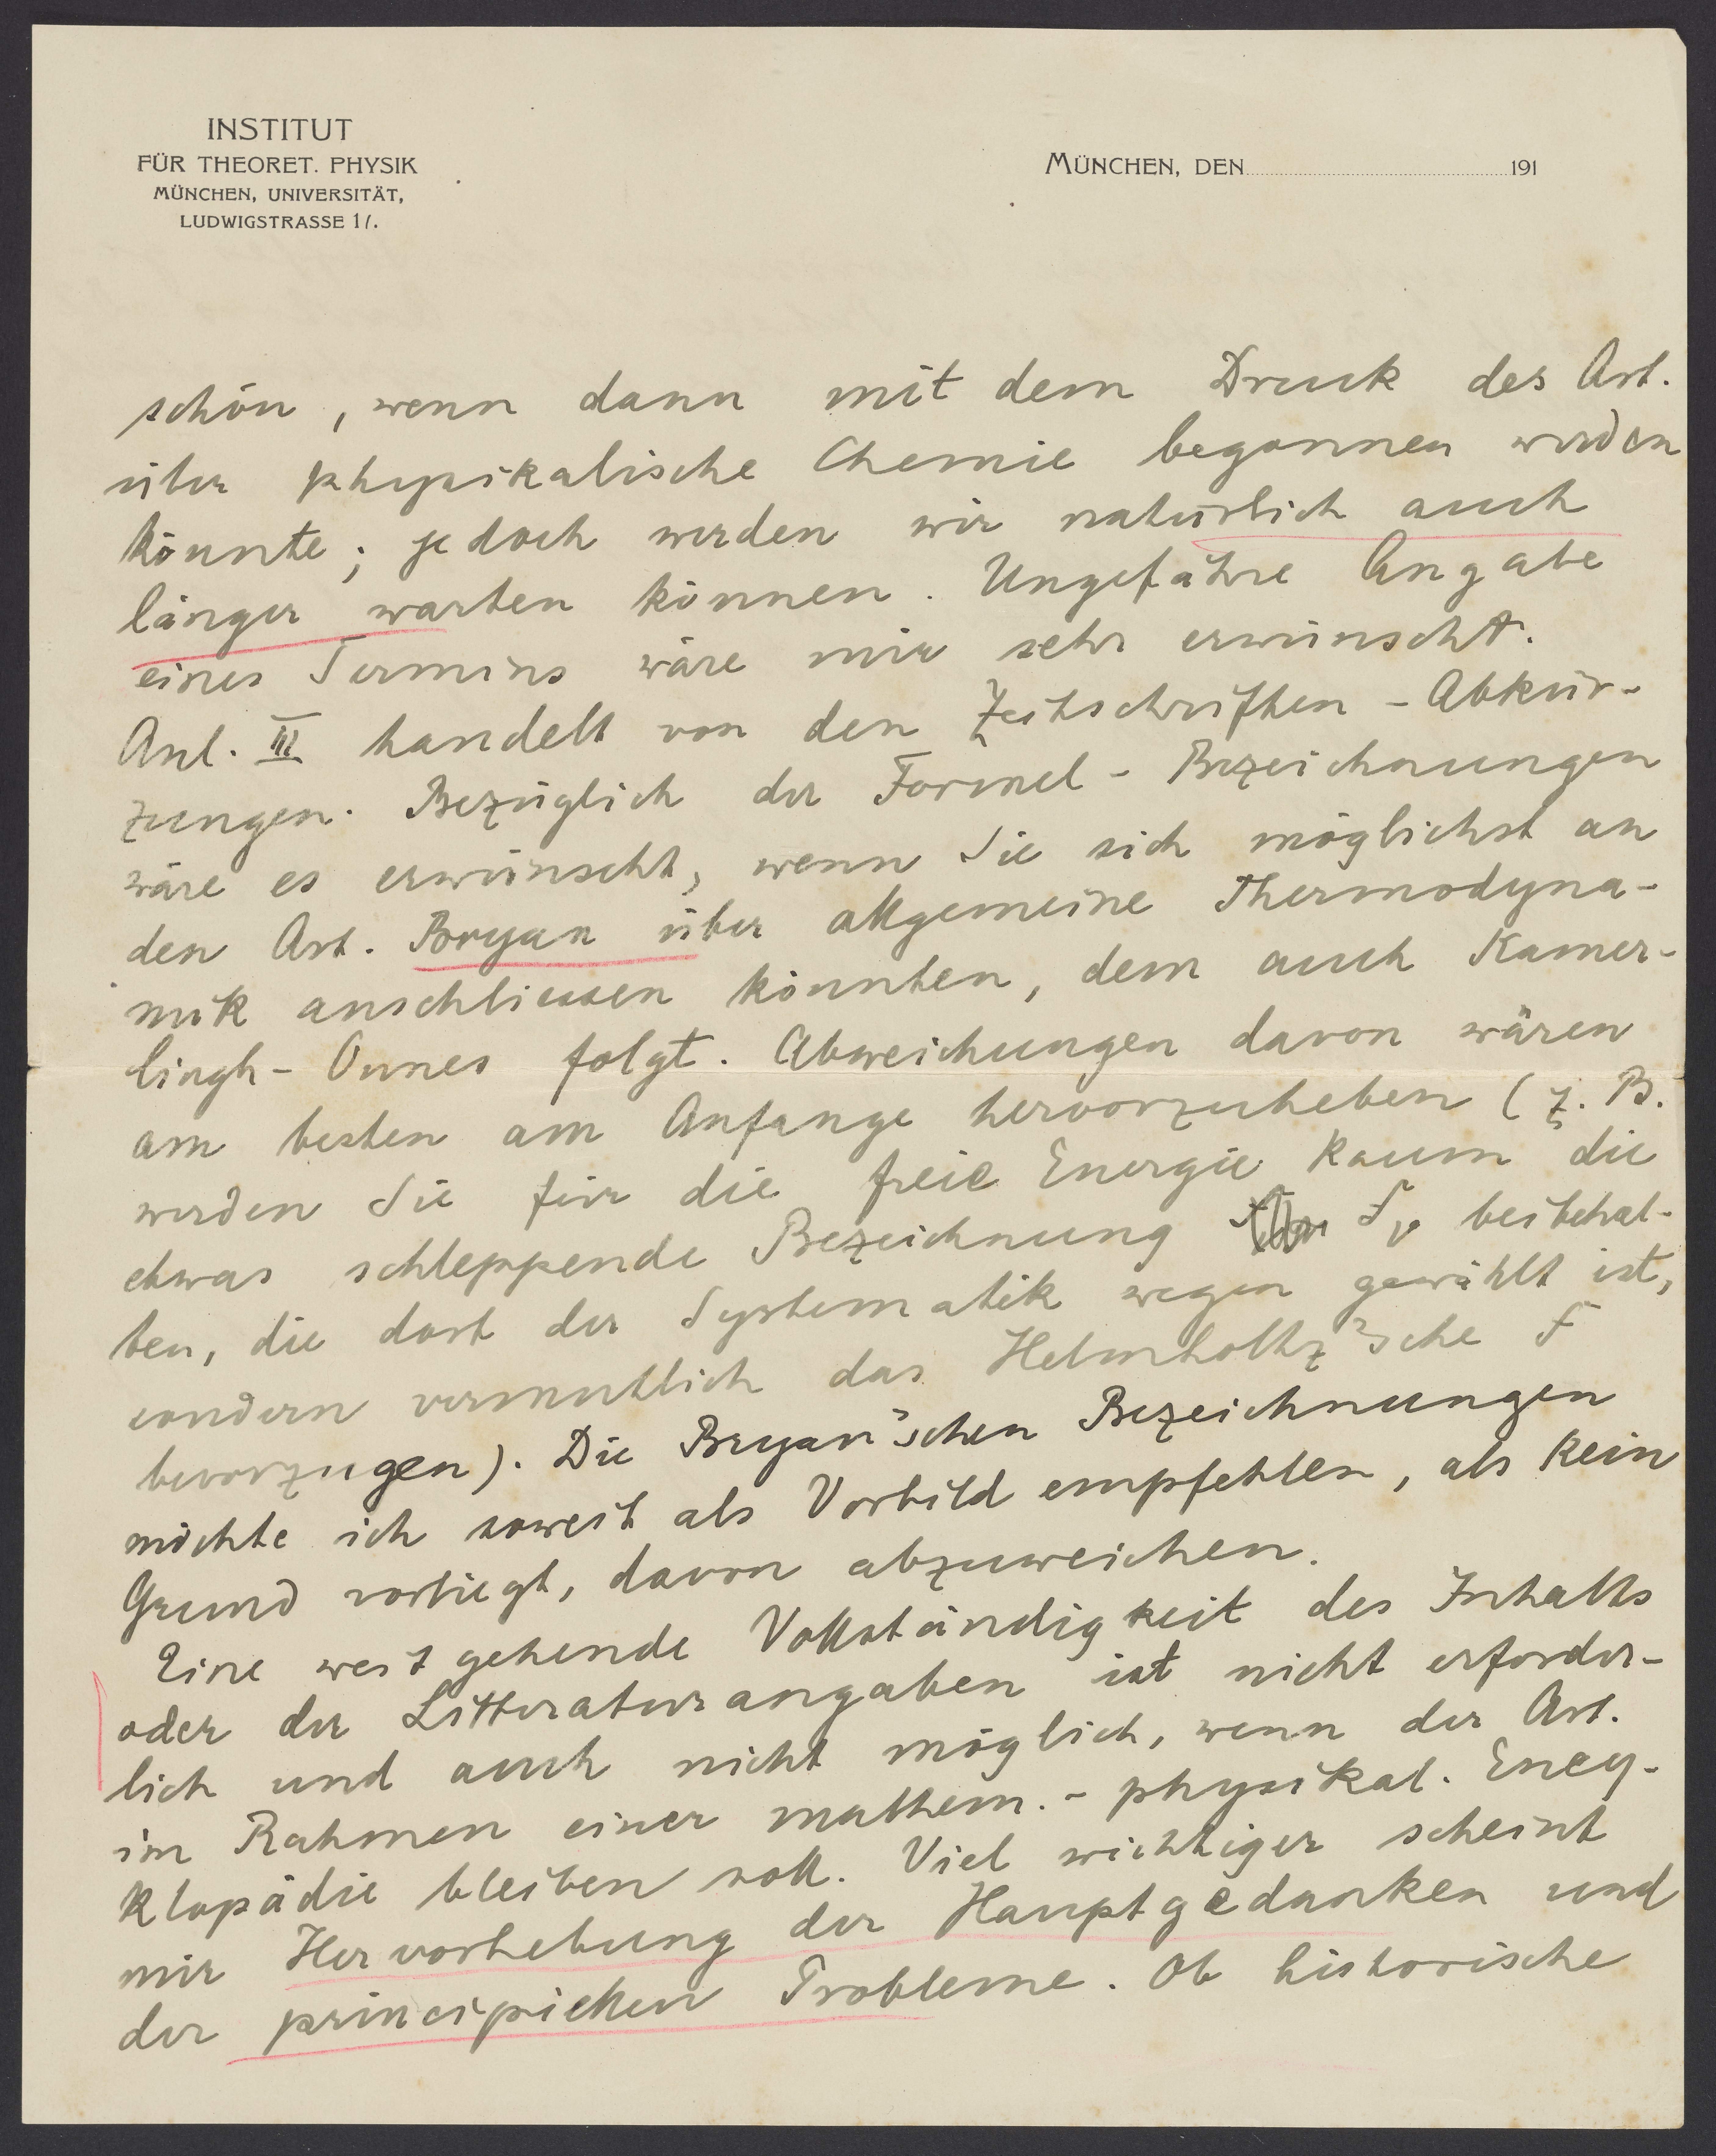 INSTITUT
FÜR THEORET. PHYSIK
MÜNCHEN, UNIVERSITÄT,
LUDWIGSTRASSE 17.
MÜNCHEN, DEN 191
schön, wenn dann mit dem Druck des Art.
über physikalische Chemie begonnen werden
könnte; jedoch werden wir natürlich auch
länger warten können. Ungefähre Angabe
eines Termins wäre mir sehr erwünscht.
Anl. III handelt von den Zeitschriften-Abkür-
zungen. Bezüglich der Formel-Bezeichnungen
wäre es erwünscht, wenn Sie sich möglichst an
den Art. Bryan über allgemeine Thermodyna-
mik anschliessen könnten, dem auch Kamer-
lingh-Onnes folgt. Abweichungen davon wären
am besten am Anfange hervorzuheben (z. B.
werden Sie für die freie Energie kaum die
etwas schleppende Bezeichnung F_v beibehal-
ten, die dort der Systematik wegen gewählt ist,
sondern vermutlich das Helmholtz'sche F
bevorzugen). Die Bryan'schen Bezeichnungen
möchte ich soweit als Vorbild empfehlen, als kein
Grund vorliegt, davon abzuweichen.
Eine weitgehende Vollständigkeit des Inhalts
oder der Litteraturangaben ist nicht erforder-
lich und auch nicht möglich, wenn der Art.
im Rahmen einer mathem.-physikal. Ency-
klopädie bleiben soll. Viel wichtiger scheint
mir Hervorhebung der Hauptgedanken und
der principiellen Probleme. Ob historische